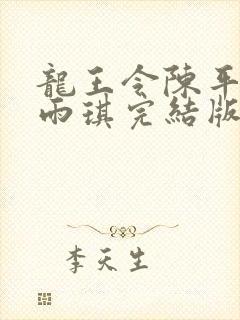 龍王令陳平
雨琪完結版
李天生